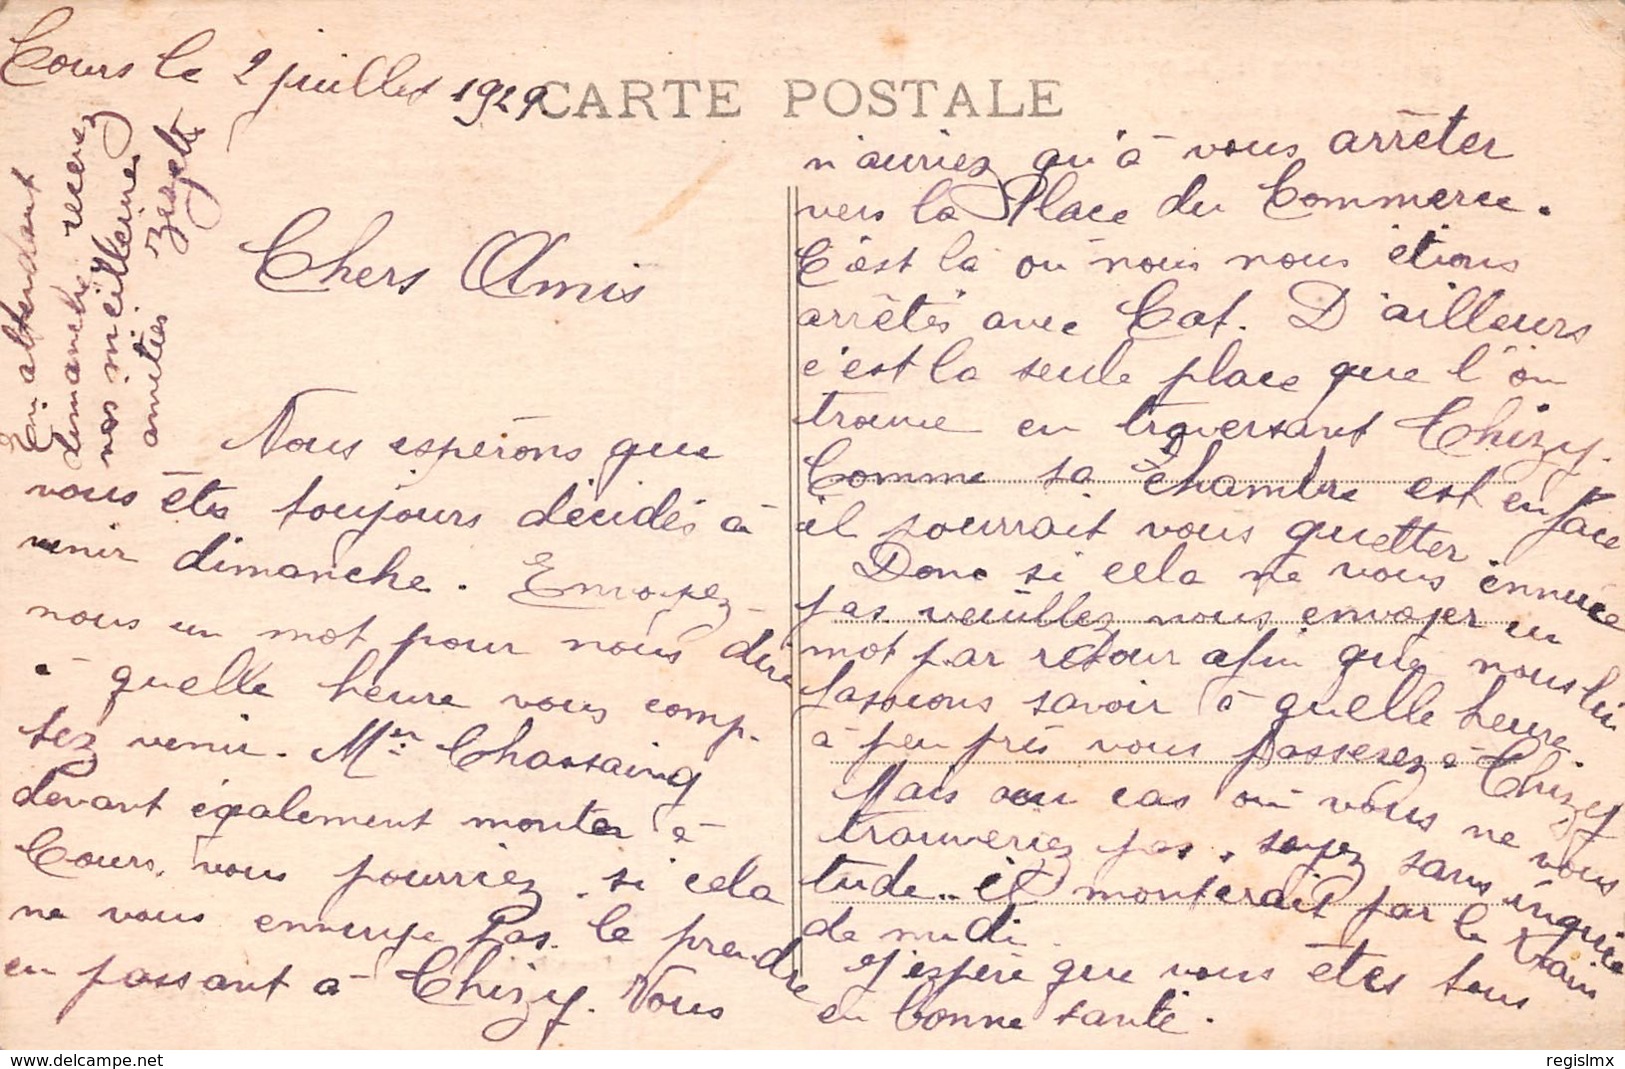 Tours le 2 juillet 1929
CARTE POSTALE
Chers Amis
Nous espérons que
vous êtes toujours décidés à
venir dimanche. Envoyez-
nous un mot pour nous dire
à quelle heure vous comp-
tez venir. Mr Chassaing
devant également monter à
Tours, vous pourriez, si cela
ne vous ennuye pas le prendre
en passant à Thizy. Vous
n'auriez qu'à vous arrêter
vers la Place du Commerce.
C'est là où nous nous étions
arrêtés avec Cat. D'ailleurs
c'est la seule place que l'on
trouve en traversant Thizy.
Comme sa chambre est en face
il pourrait vous guetter.
Donc si cela ne vous ennuie
pas veuillez nous envoyer un
mot par retour afin que nous lui
fassions savoir à quelle heure
à peu près vous passerez à Thizy
Mais au cas où vous ne vous
trouveriez pas, soyez sans inquié
tude.. il monterait par le train
de midi.
J'espère que vous êtes tous
en bonne santé.
En attendant
dimanche recevez
nos meilleures
amitiés
regislmx
www.delcampe.net